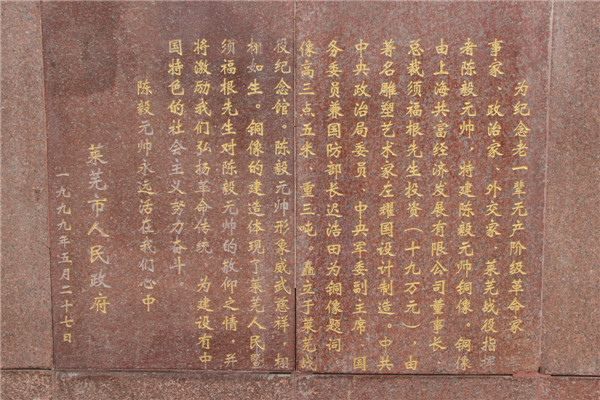 为纪念老一辈无产阶级革命家
事家、政治家、外交家、莱芜战役指挥
者陈毅元帅，特建陈毅元帅铜像。铜像
由上海共富经济发展有限公司董事长
总裁须福根先生投资（十九万元），由
著名雕塑艺术家左耀国设计制造。中共
中央政治局委员、中央军委副主席、国
务委员兼国防部长迟浩田为铜像题词
像高三点五米，重三吨。矗立于莱芜战
役纪念馆。陈毅元帅形象威武慈祥，栩
栩如生。铜像的建造体现了莱芜人民暨
须福根先生对陈毅元帅的敬仰之情，并
将激励我们弘扬革命传统 为建设有中
国特色的社会主义努力奋斗。
陈毅元帅永远活在我们心中
莱芜市人民政府
一九九九年五月二十七日